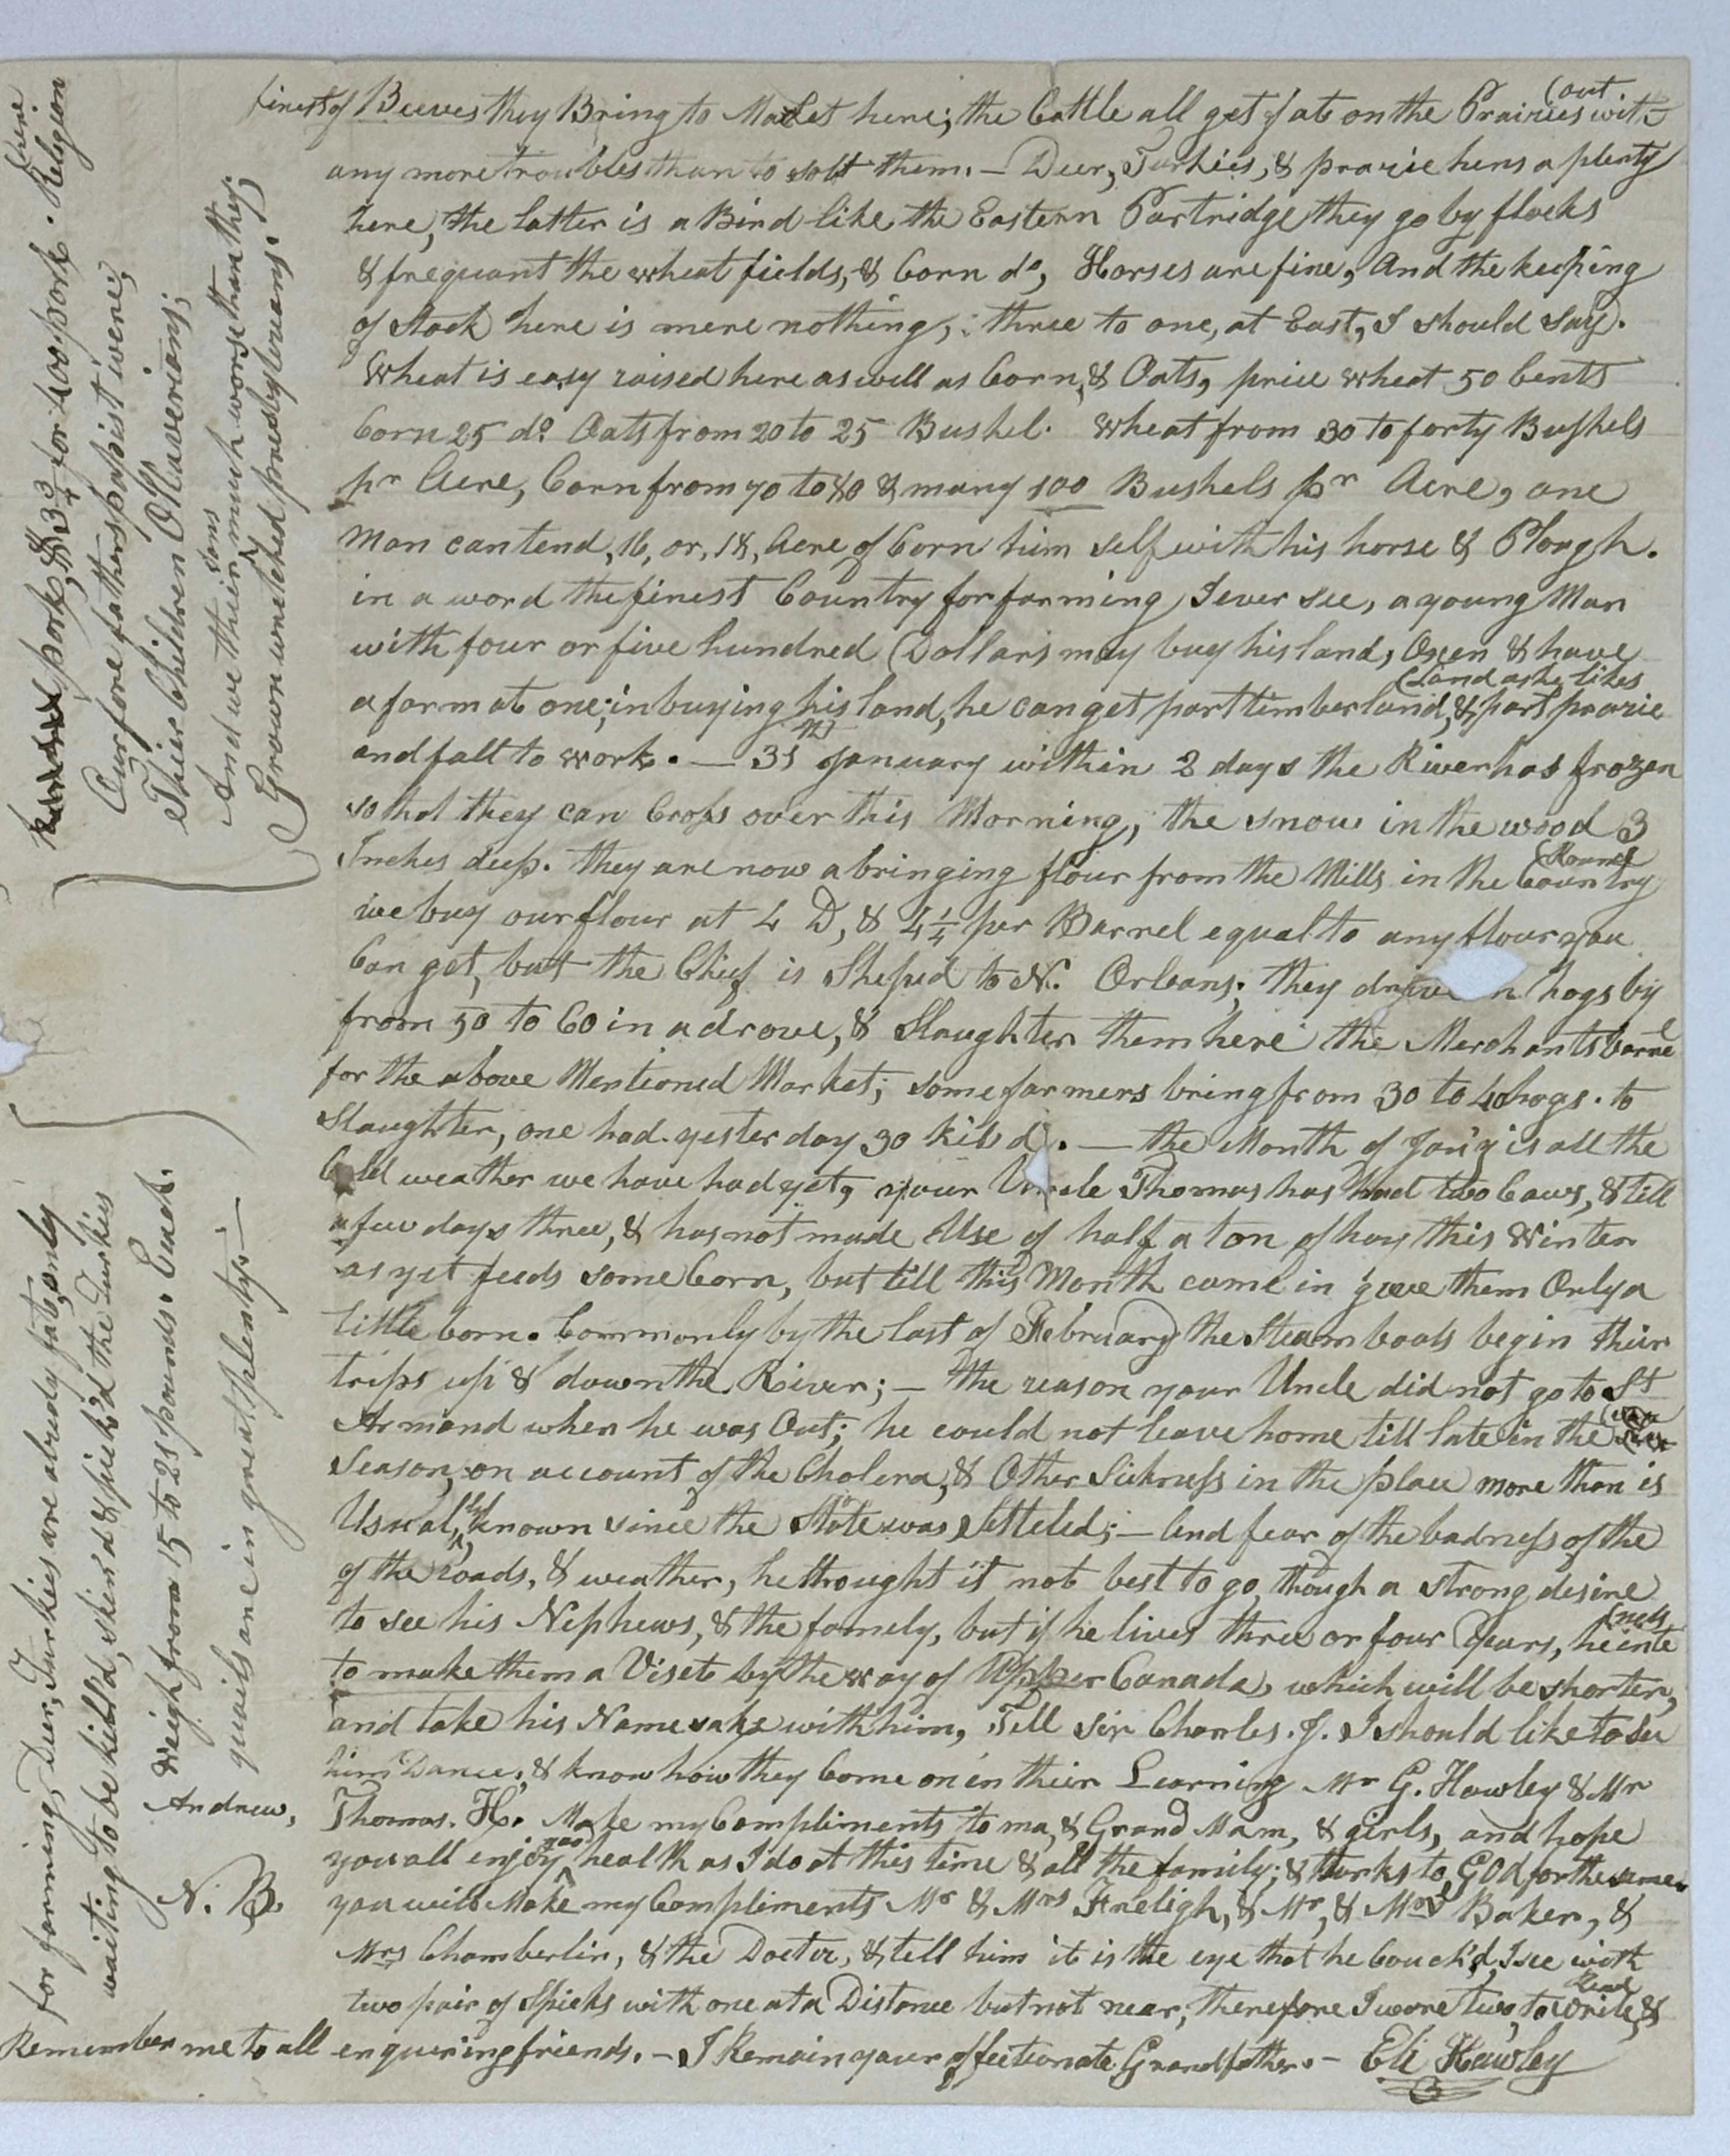 finest of Beeves they Bring to Market here; the Cattle all get fat on the Prairies with(out
any more troubles than to salt them. – Deer, Turkies, & prarie hens a plenty
here, the latter is a Bird like the Eastern Partridge they go by flocks
& frequant the wheat fields, & Corn do, Horses are fine, And the keeping
of Stock here is mere nothing, : three to one, at East, I should say.
Wheat is easy raised here as well as Corn, & Oats, price wheat 50 Cents
Corn 25 do Oats from 20 to 25 Bushel. Wheat from 30 to forty Bushels
pr Acre, Corn from 70 to 80 & many 100 Bushels pr Acre, one
Man can tend, 16, or, 18, Acre of Corn him self with his horse & Plough.
in a word the finest Country for farming I ever see, a young Man
with four or five hundred Dollars may buy his land, Oxen & have
(Land as he likes
a farm at one; in buying his land, he can get part timber land, & part prarie
and fall to work. – 31 th January within 2 days the River has frozen
so that they can Cross over this Morning, the snow in the wood 3
Inches deep. they are now a bringing flour from the Mills in the Country
we buy our flour at 4 D, & 4 1/4 per Barrel equal to any flour you
Can get, but the Chief is Sheped to N. Orleans; they drive hogs by
from 50 to 60 in a drove, & Slaughter them here the Merchants barrel
for the above Mentioned Market; some farmers bring from 30 to 40 hogs. to
Slaughter, one had yesterday 30 kil'd. – the Month of Jan'y is all the
Cold weather we have had yet, your Uncle Thomas has had two Cows, & till
a few days three, & has not made Use of half a ton of hay this Winter
as yet feeds some Corn, but till this Month came in gave them Only a
little Corn. Commonly by the last of February the Steam boats begin thier
trips up & down the River; – the reason your Uncle did not go to St
Armand when he was Out; he could not leave home till late in the
Season, on account of the Cholera, & Other Sickness in the place more than is
Usual, known since the State was Setteled; – And fear of the badness of the
of the roads, & weather, he thought it not best to go, though a strong desire
to see his Nephews, & the famely, but if he lives three or four Years, he inte(nds
to make them a Viset by the way of Upper Canada, which will be shorter,
and take his Name sake with him, Tell Sir Charles. J. I should like to see
him Dance, & know how they Come on in thier Learning Mr G. Hawley & Mr
Thomas. H. Make my Compliments to ma, & Grand Mam, & girls, and hope
you all enjoy good health as I do at this time & all the family; & thanks to GOd for the same.
you will Make my Compliments Mr & Mrs Freligh, & Mr, & Mrs Baker, &
Mrs Chamberlin, & the Doctor, & tell him it is the eye that he Couch'd, I see with
two pair of Specks with one at a Distance but not near, therefore I wore two, to write, & (Read
Remember me to all enquering friends. – I Remain your affectionate Grandfather. – Eli Hawley
pork, $3 3/4 for 100 pork. Religion here
Our fore fathers papist were;
Thier Children Ollaverians;
And we thier sons much worse than they;
Grown wretched presbyterians.
for farming, Deer, Turkies are alredy fat, only
waiting to be kill'd, skin'd & pick'd the Turkies
Weigh from 15 to 25 pounds. Each.
quails are in great plenty. –
Andrew,
N. B.